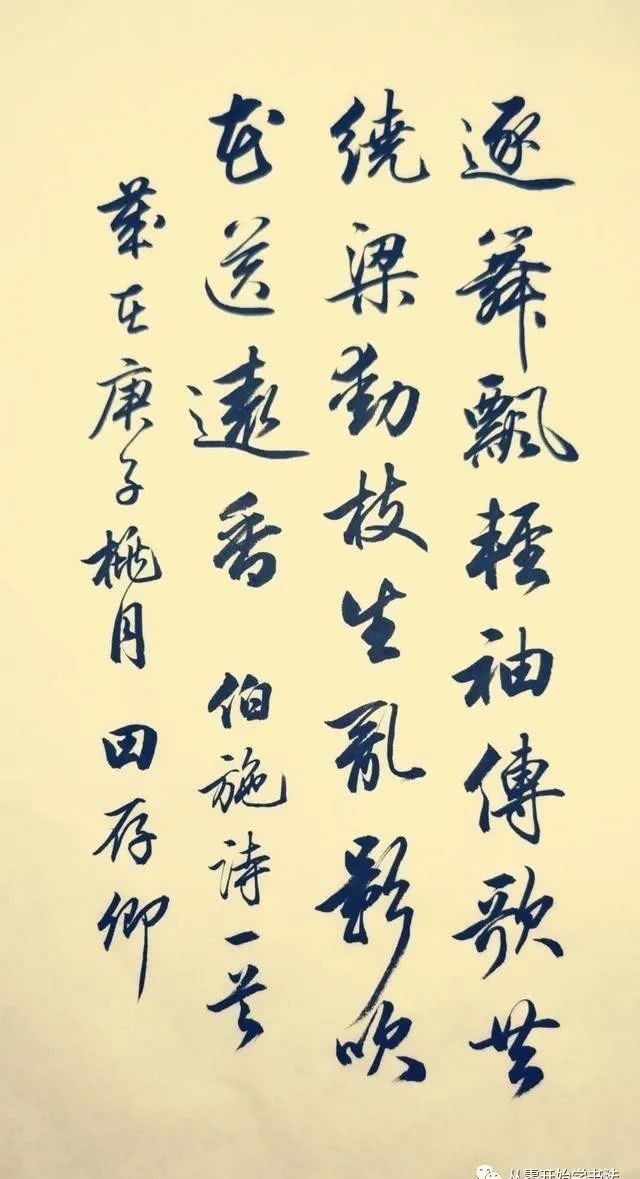 逐舞飄輕袖傳歌共
繞梁動枝生亂影吹
花送遠香 伯施诗一首
歲在庚子桃月 田存卿
从零开始学书法